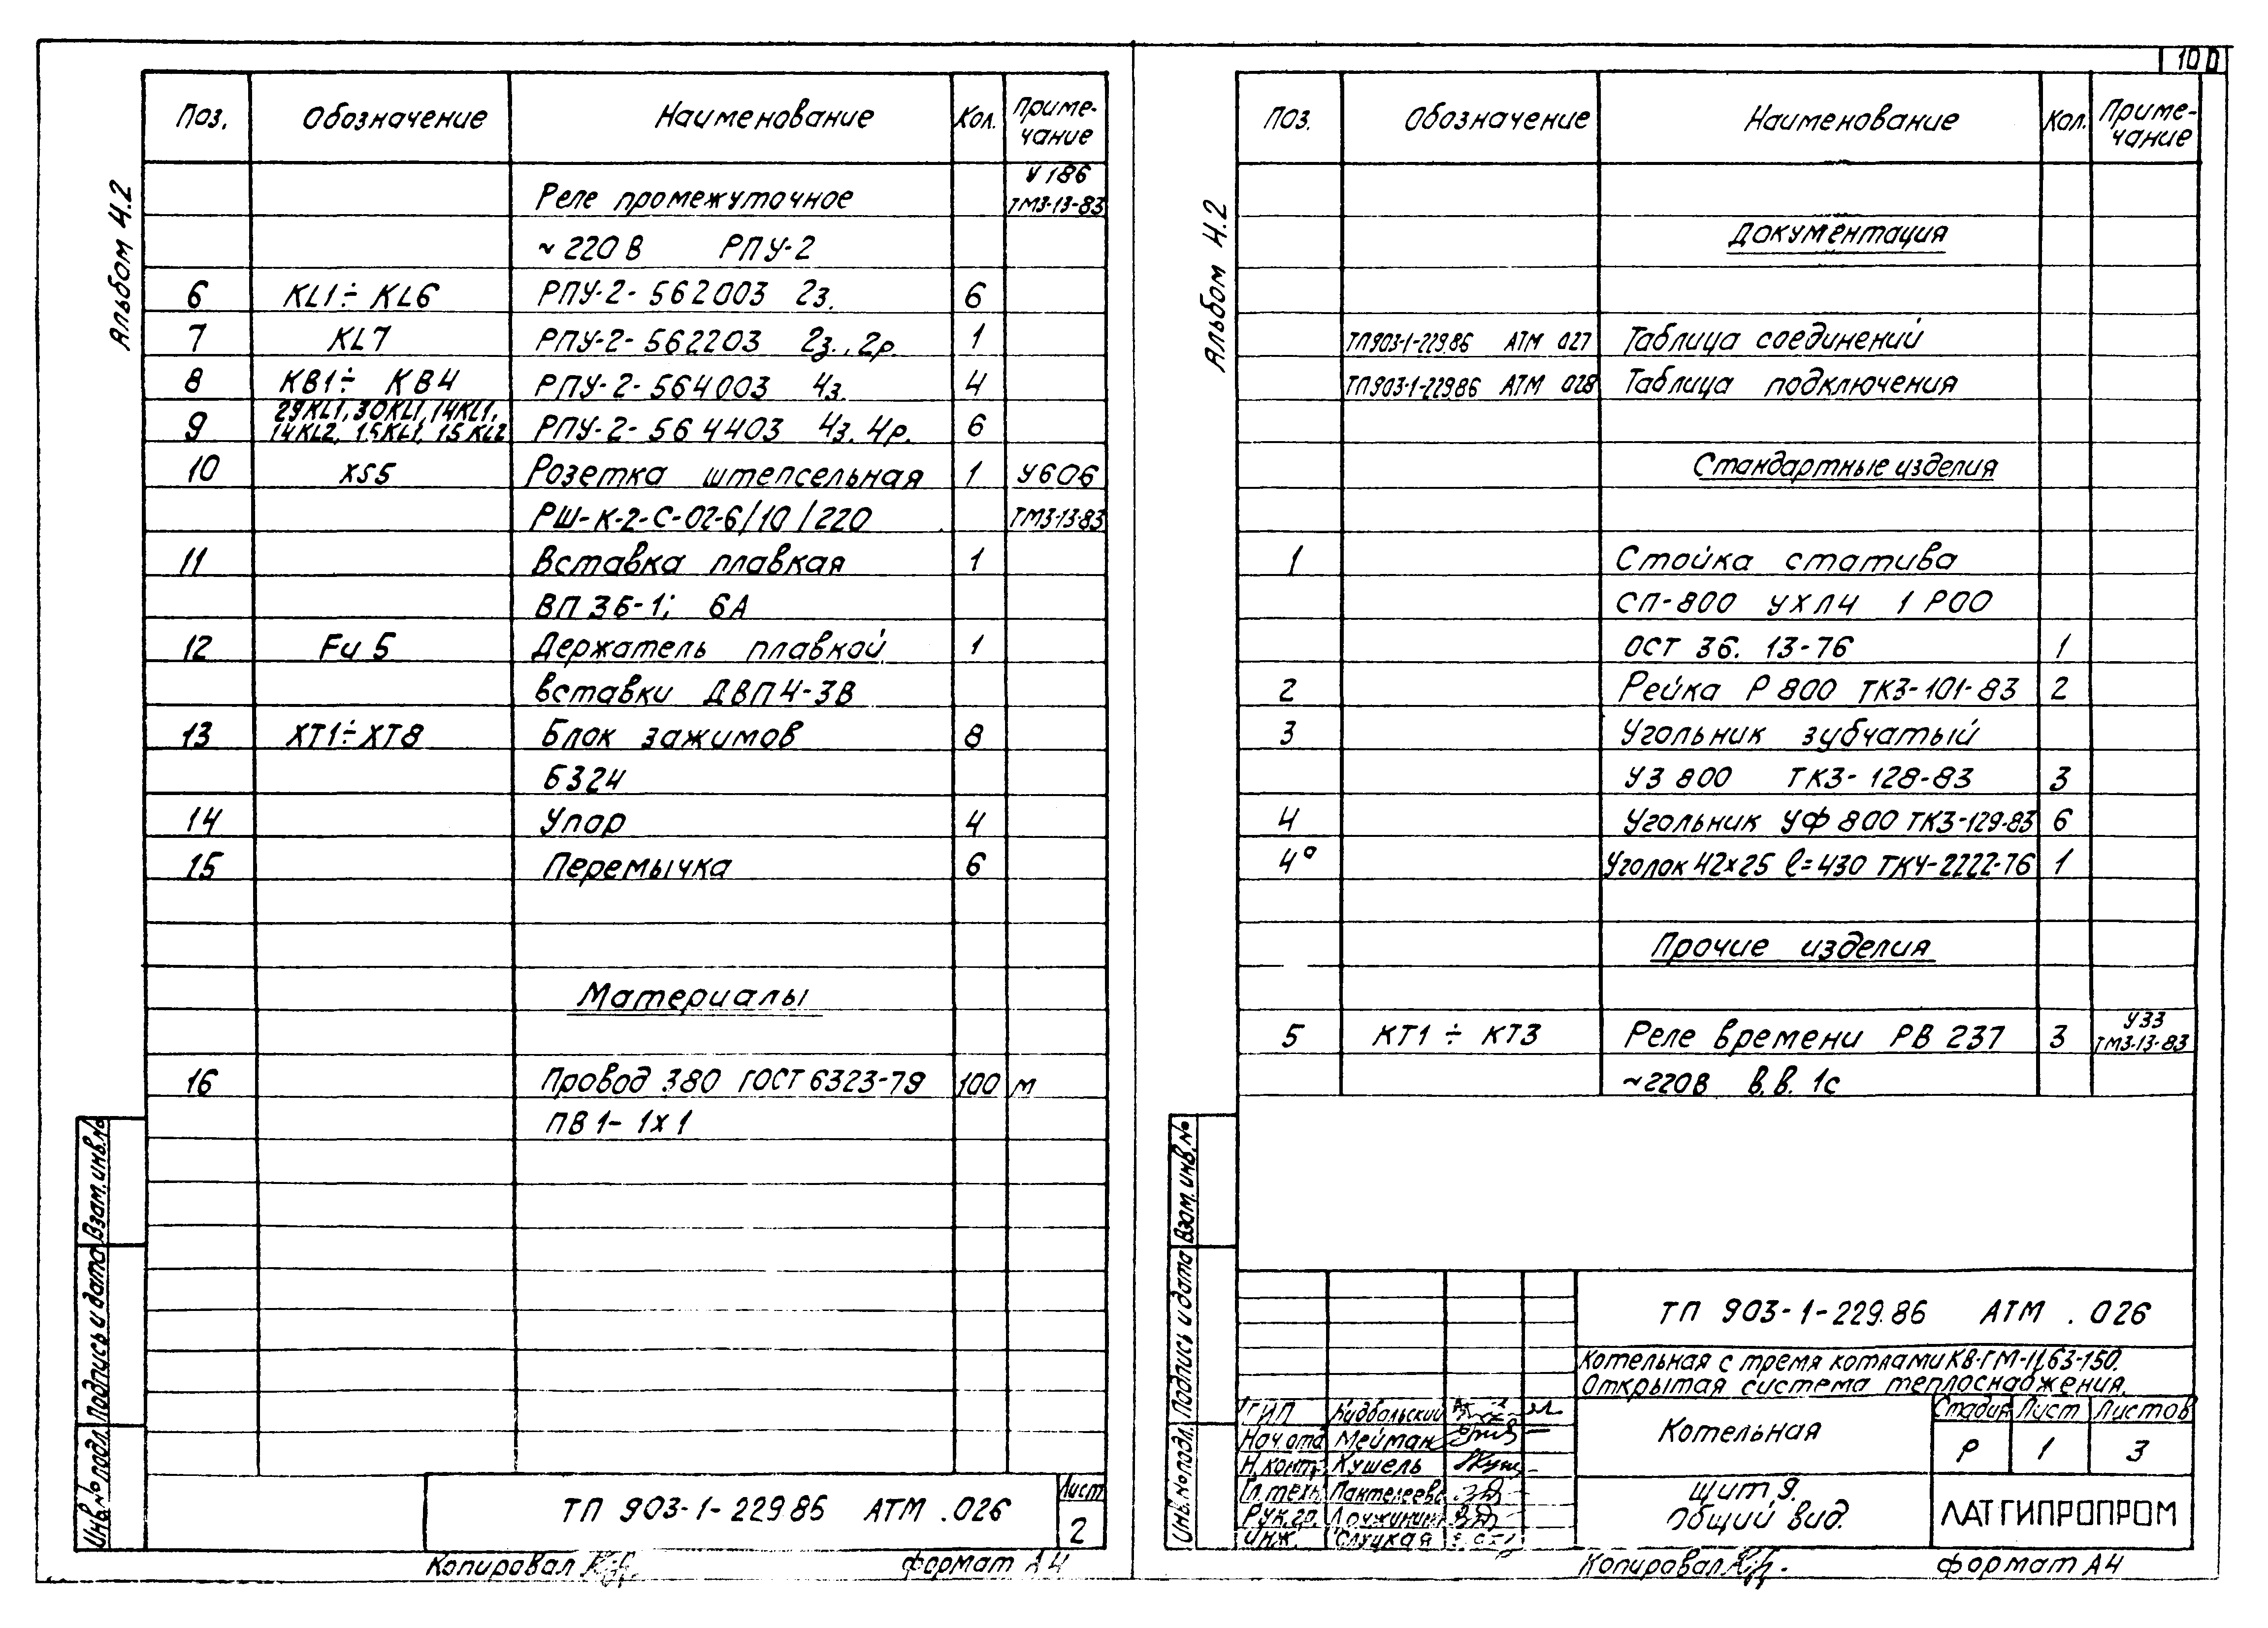 Альбом 4.2
Поз. Обозначение Наименование Кол. Примечание
Реле промежуточное У 186 ТМ3-13-83
~ 220 В РПУ-2
6 KL1 ÷ KL6 РПУ-2-562003 2з. 6
7 KL7 РПУ-2-562203 2з., 2р. 1
8 KB1 ÷ KB4 РПУ-2-564003 4з. 4
9 29KL1, 30KL1, 14KL1, 14KL2, 15KL1, 15KL2 РПУ-2-564403 4з. 4р. 6
10 XS5 Розетка штепсельная 1 У606
РШ-К-2-С-02-6/10/220 ТМ3-13-83
11 Вставка плавкая 1
ВП3Б-1; 6А
12 Fu 5 Держатель плавкой 1
вставки ДВП4-3В
13 XT1÷XT8 Блок зажимов 8
БЗ24
14 Упор 4
15 Перемычка 6
Материалы
16 Провод 380 ГОСТ 6323-79 100 м
ПВ1- 1х1
Взам. инв. №
Подпись и дата
Инв. № подл.
ТП 903-1-229 86 АТМ .026
Лист
2
Копировал
формат А4
10
Альбом 4.2
Поз. Обозначение Наименование Кол. Примечание
Документация
ТП903-1-229.86 АТМ 027 Таблица соединений
ТП903-1-229.86 АТМ 028 Таблица подключения
Стандартные изделия
1 Стойка статива
СП-800 УХЛ4 1 Р00
ОСТ 36. 13-76 1
2 Рейка Р 800 ТК3-101-83 2
3 Угольник зубчатый
УЗ 800 ТК3-128-83 3
4 Угольник УФ 800 ТК3-129-83 6
4а Уголок 42х25 ℓ=430 ТКЧ-2222-76 1
Прочие изделия
5 КТ1 ÷ КТ3 Реле времени РВ 237 3 У33 ТМ3-13-83
~220В в.в. 1с
Взам. инв. №
Подпись и дата
Инв. № подл.
ТП 903-1-229.86 АТМ .026
Котельная с тремя котлами КВ-ГМ-11,63-150.
Открытая система теплоснабжения.
ГИП
Нач отд Мейман
Н. контр. Кушель
Гл. техн. Пантелеева
Рук. гр.
Инж. Слуцкая
Котельная
Стадия Лист Листов
Р 1 3
Щит 9.
Общий вид.
ЛАТГИПРОПРОМ
Копировал
формат А4